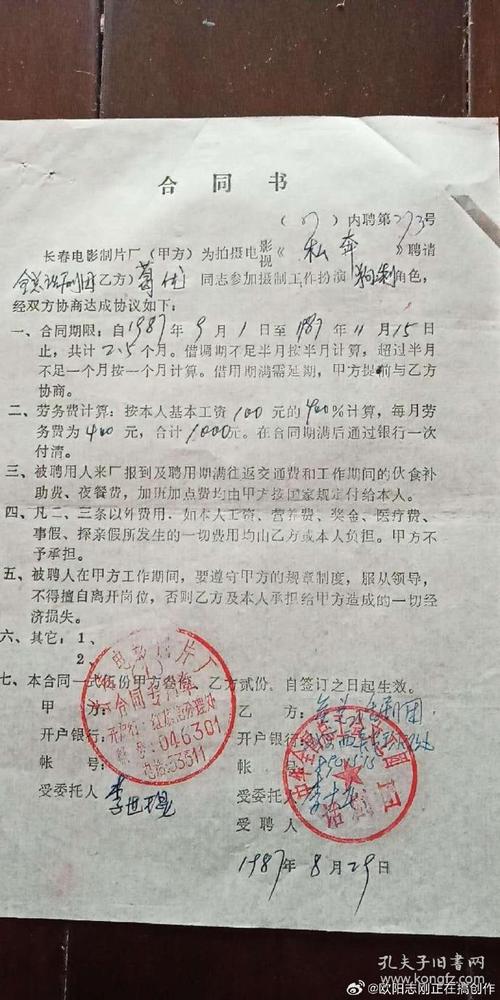 合同书
(87)内聘第273号
长春电影制片厂(甲方)为拍摄电影视《私奔》聘请
全总话剧团(乙方)葛优同志参加摄制工作扮演角色,
经双方协商达成协议如下:
一、合同期限:自1987年9月1日至1987年11月15日
止,共计2.5个月。借调期不足半月按半月计算,超过半月
不足一个月按一个月计算。借用期满需延期,甲方提前与乙方
协商。
二、劳务费计算:按本人基本工资100元的400%计算,每月劳
务费为400元,合计1000元。在合同期满后通过银行一次
付清。
三、被聘用人来厂报到及聘用期满往返交通费和工作期间的伙食补
助费、夜餐费,加班加点费均由甲方按国家规定付给本人。
四、凡二、三条以外费用,如本人工资、营养费、奖金、医疗费、
事假、探亲假所发生的一切费用均由乙方或本人负担。甲方不
予承担。
五、被聘人在甲方工作期间,要遵守甲方的规章制度,服从领导,
不得擅自离开岗位,否则乙方及本人承担给甲方造成的一切经
济损失。
六、其它:1、
2、
七、本合同一式伍份甲方叁份,乙方贰份,自签订之日起生效。
甲方:
开户银行:
帐号:
受委托人
电影制片厂
合同专用章
开户行:红旗街办理处
帐号:046301
电话:53311
乙方:全总话剧团
开户银行:
帐号:
受委托人
受聘人
话剧团
1987年8月29日
孔夫子旧书网
@欧阳志刚正在搞创作